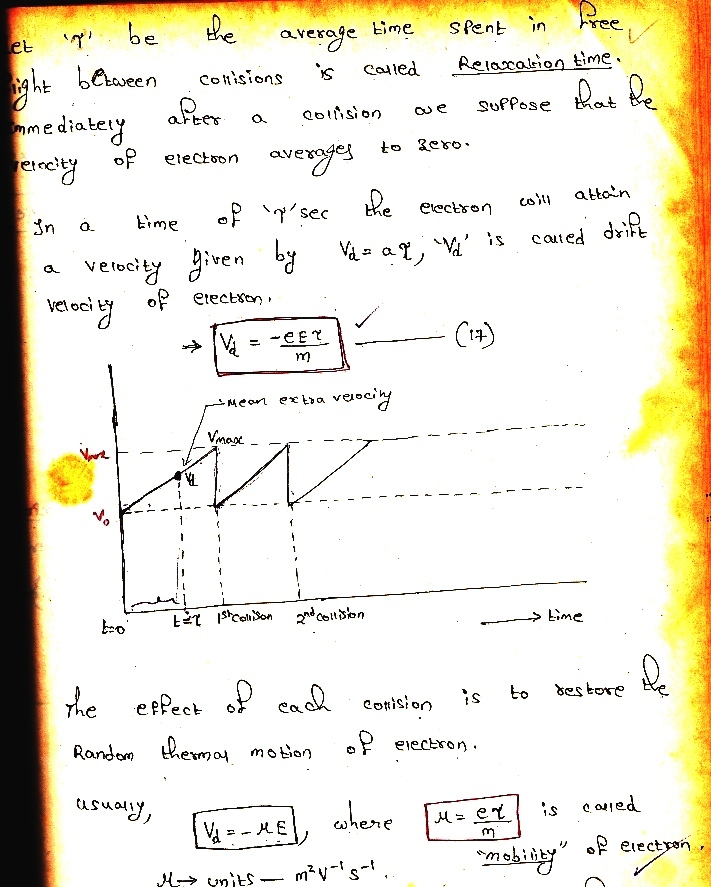 et 'τ' be the average time spent in free
ight between collisions is called Relaxation time.
mmediately after a collision we suppose that the
velocity of electron averages to zero.
In a time of 'τ' sec the electron will attain
a velocity given by Vd = aτ, 'Vd' is called drift
velocity of electron.
⇒ Vd = -eEτ/m ✓ — (17)
Mean extra velocity
Vmax
Vmax
Vd
V₀
t=0 t=τ 1st collison 2nd collision → time
The effect of each collision is to restore the
Random thermal motion of electron.
usually, Vd = -μE, where μ = eτ/m is called
"mobility" of electron.
μ → units — m²V⁻¹s⁻¹.